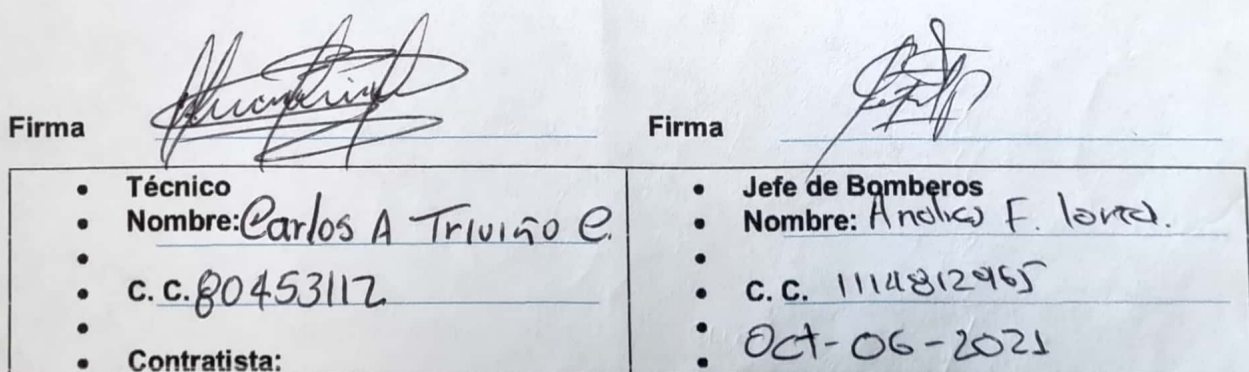 Firma
Firma
Técnico
Nombre: Carlos A Triviño C.
C. C. 80453112
Contratista:
Jefe de Bomberos
Nombre: F.
C. C. 1114812965
Oct-06-2021